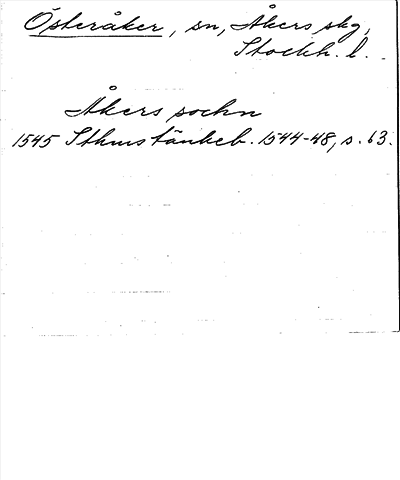 Österåker, sn, Åkers skg,
Stockh. l.
Åkers sockn
1545 Sthms tänkeb. 1544-48, s. 63.